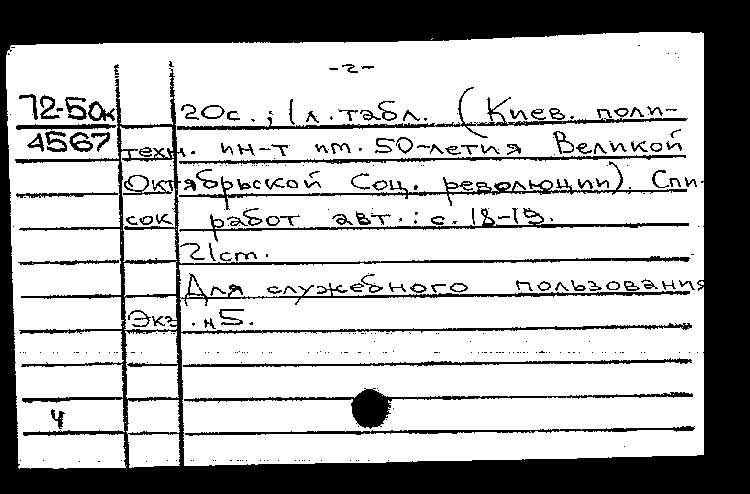 -2-
72-50к 20с.; 1 л. табл. (Киев. поли-
4567 техн. ин-т им. 50-летия Великой
Октябрьской Соц. революции). Спи-
сок работ авт.: с. 18-19.
21 cm.
Для служебного пользования
Экз. №5.
4